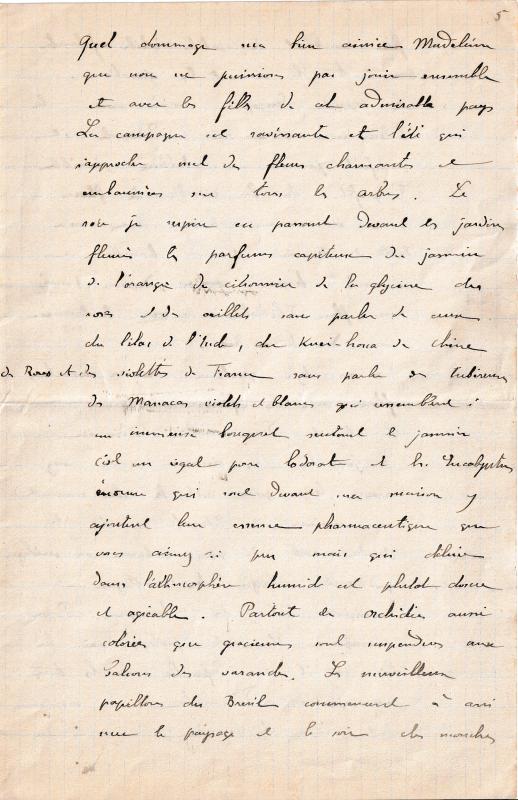 5
Quel dommage ma bien aimée Madeleine
que nous ne puissions pas jouir ensemble
et avec les filles de cet admirable pays
La campagne est ravissante et l'été qui
s'approche met des fleurs charmantes et
embaumées sur tous les arbres. Le
soir je respire en passant devant les jardins
fleuris les parfums capiteux du jasmin
de l'oranger de citronnier de la glycine des
roses et des œillets sans parler de ceux
du lilas de l'Inde, du de Chine
de Roses et des violettes de France sans parler des tubéreuses
des Manacas violets et blancs qui ressemblent à
un immense bouquet surtout le jasmin
c'est un régal pour l'odorat et les Eucalyptus
énorme qui sont devant ma maison y
ajoutent leur essence pharmaceutique que
vous aimez si peu mais qui
dans l'athmosphère humide est plutot douce
et agréable. Partout des orchidées aussi
colorées que gracieuses sont suspendues aux
balcons des varandes. Les merveilleux
papillons du Brésil commencent à ani
mer le paysage et le soir des mouches